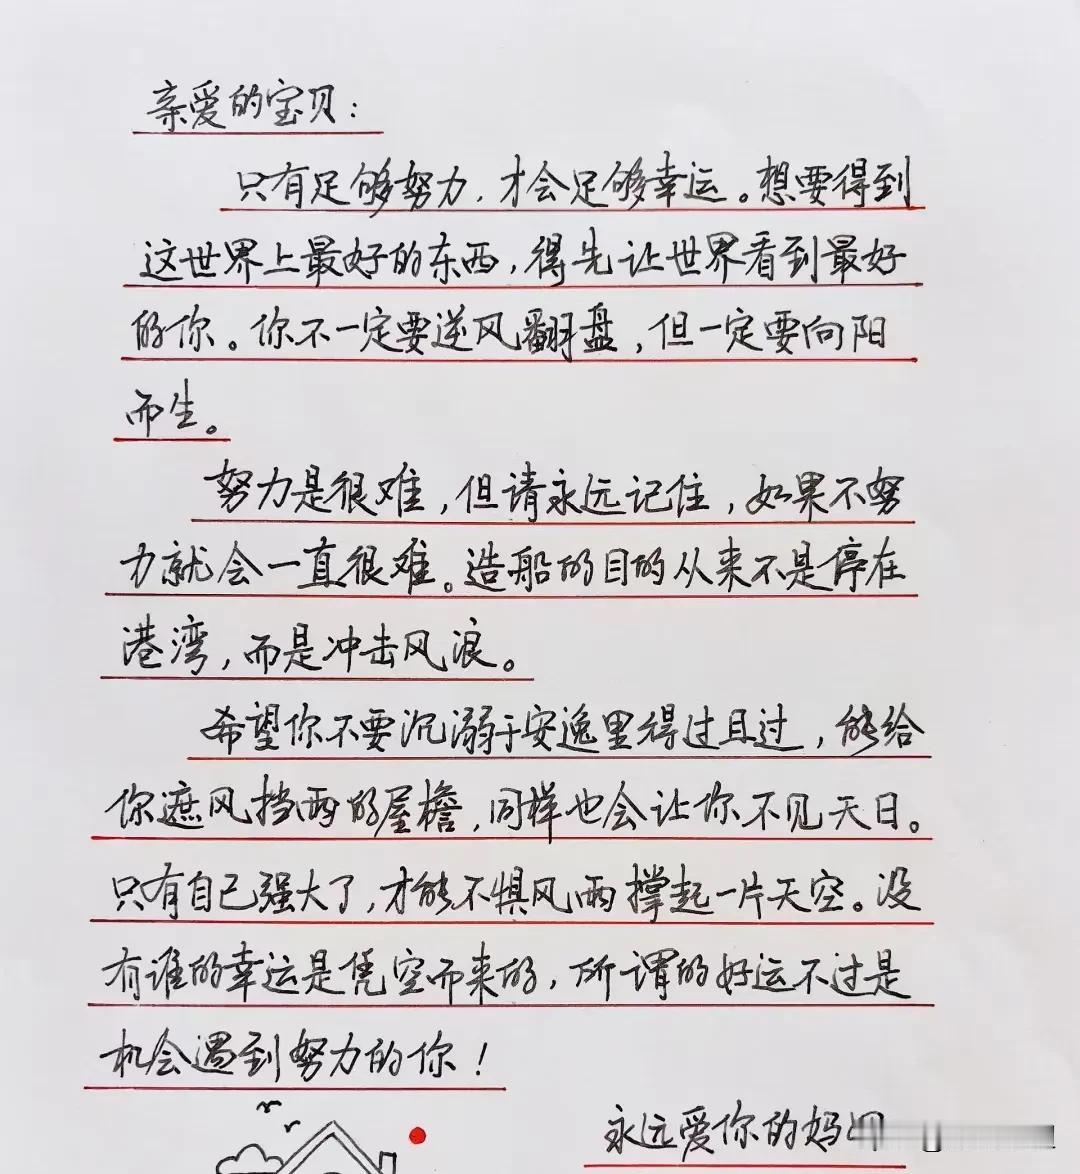 亲爱的宝贝：
只有足够努力，才会足够幸运。想要得到
这世界上最好的东西，得先让世界看到最好
的你。你不一定要逆风翻盘，但一定要向阳
而生。
努力是很难，但请永远记住，如果不努
力就会一直很难。造船的目的从来不是停在
港湾，而是冲击风浪。
希望你不要沉溺于安逸里得过且过，能给
你遮风挡雨的屋檐，同样也会让你不见天日。
只有自己强大了，才能不惧风雨撑起一片天空。没
有谁的幸运是凭空而来的，所谓的好运不过是
机会遇到努力的你！
永远爱你的妈